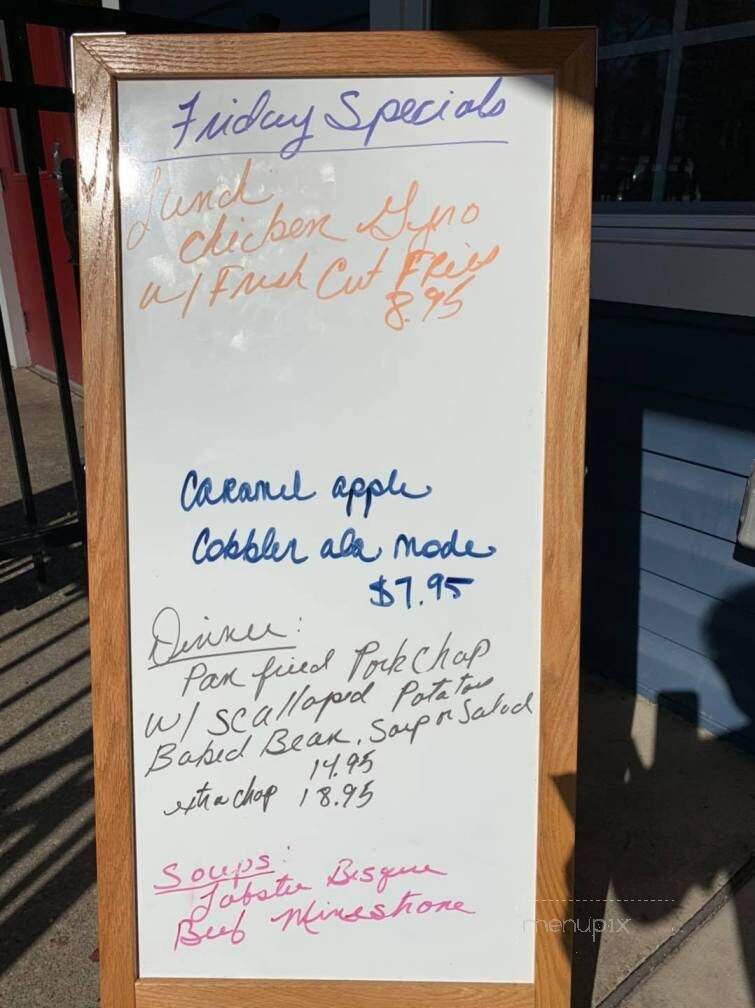 Friday Specials
Lunch
Chicken Gyro
w/ Fresh Cut Fries
8.95
Caramel apple
Cobbler ala mode
$7.95
Dinner:
Pan fried Pork Chop
w/ Scalloped Potatoes
Baked Bean, Soup or Salad
14.95
extra chop 18.95
Soups:
Lobster Bisque
Beef Minestrone
menupix